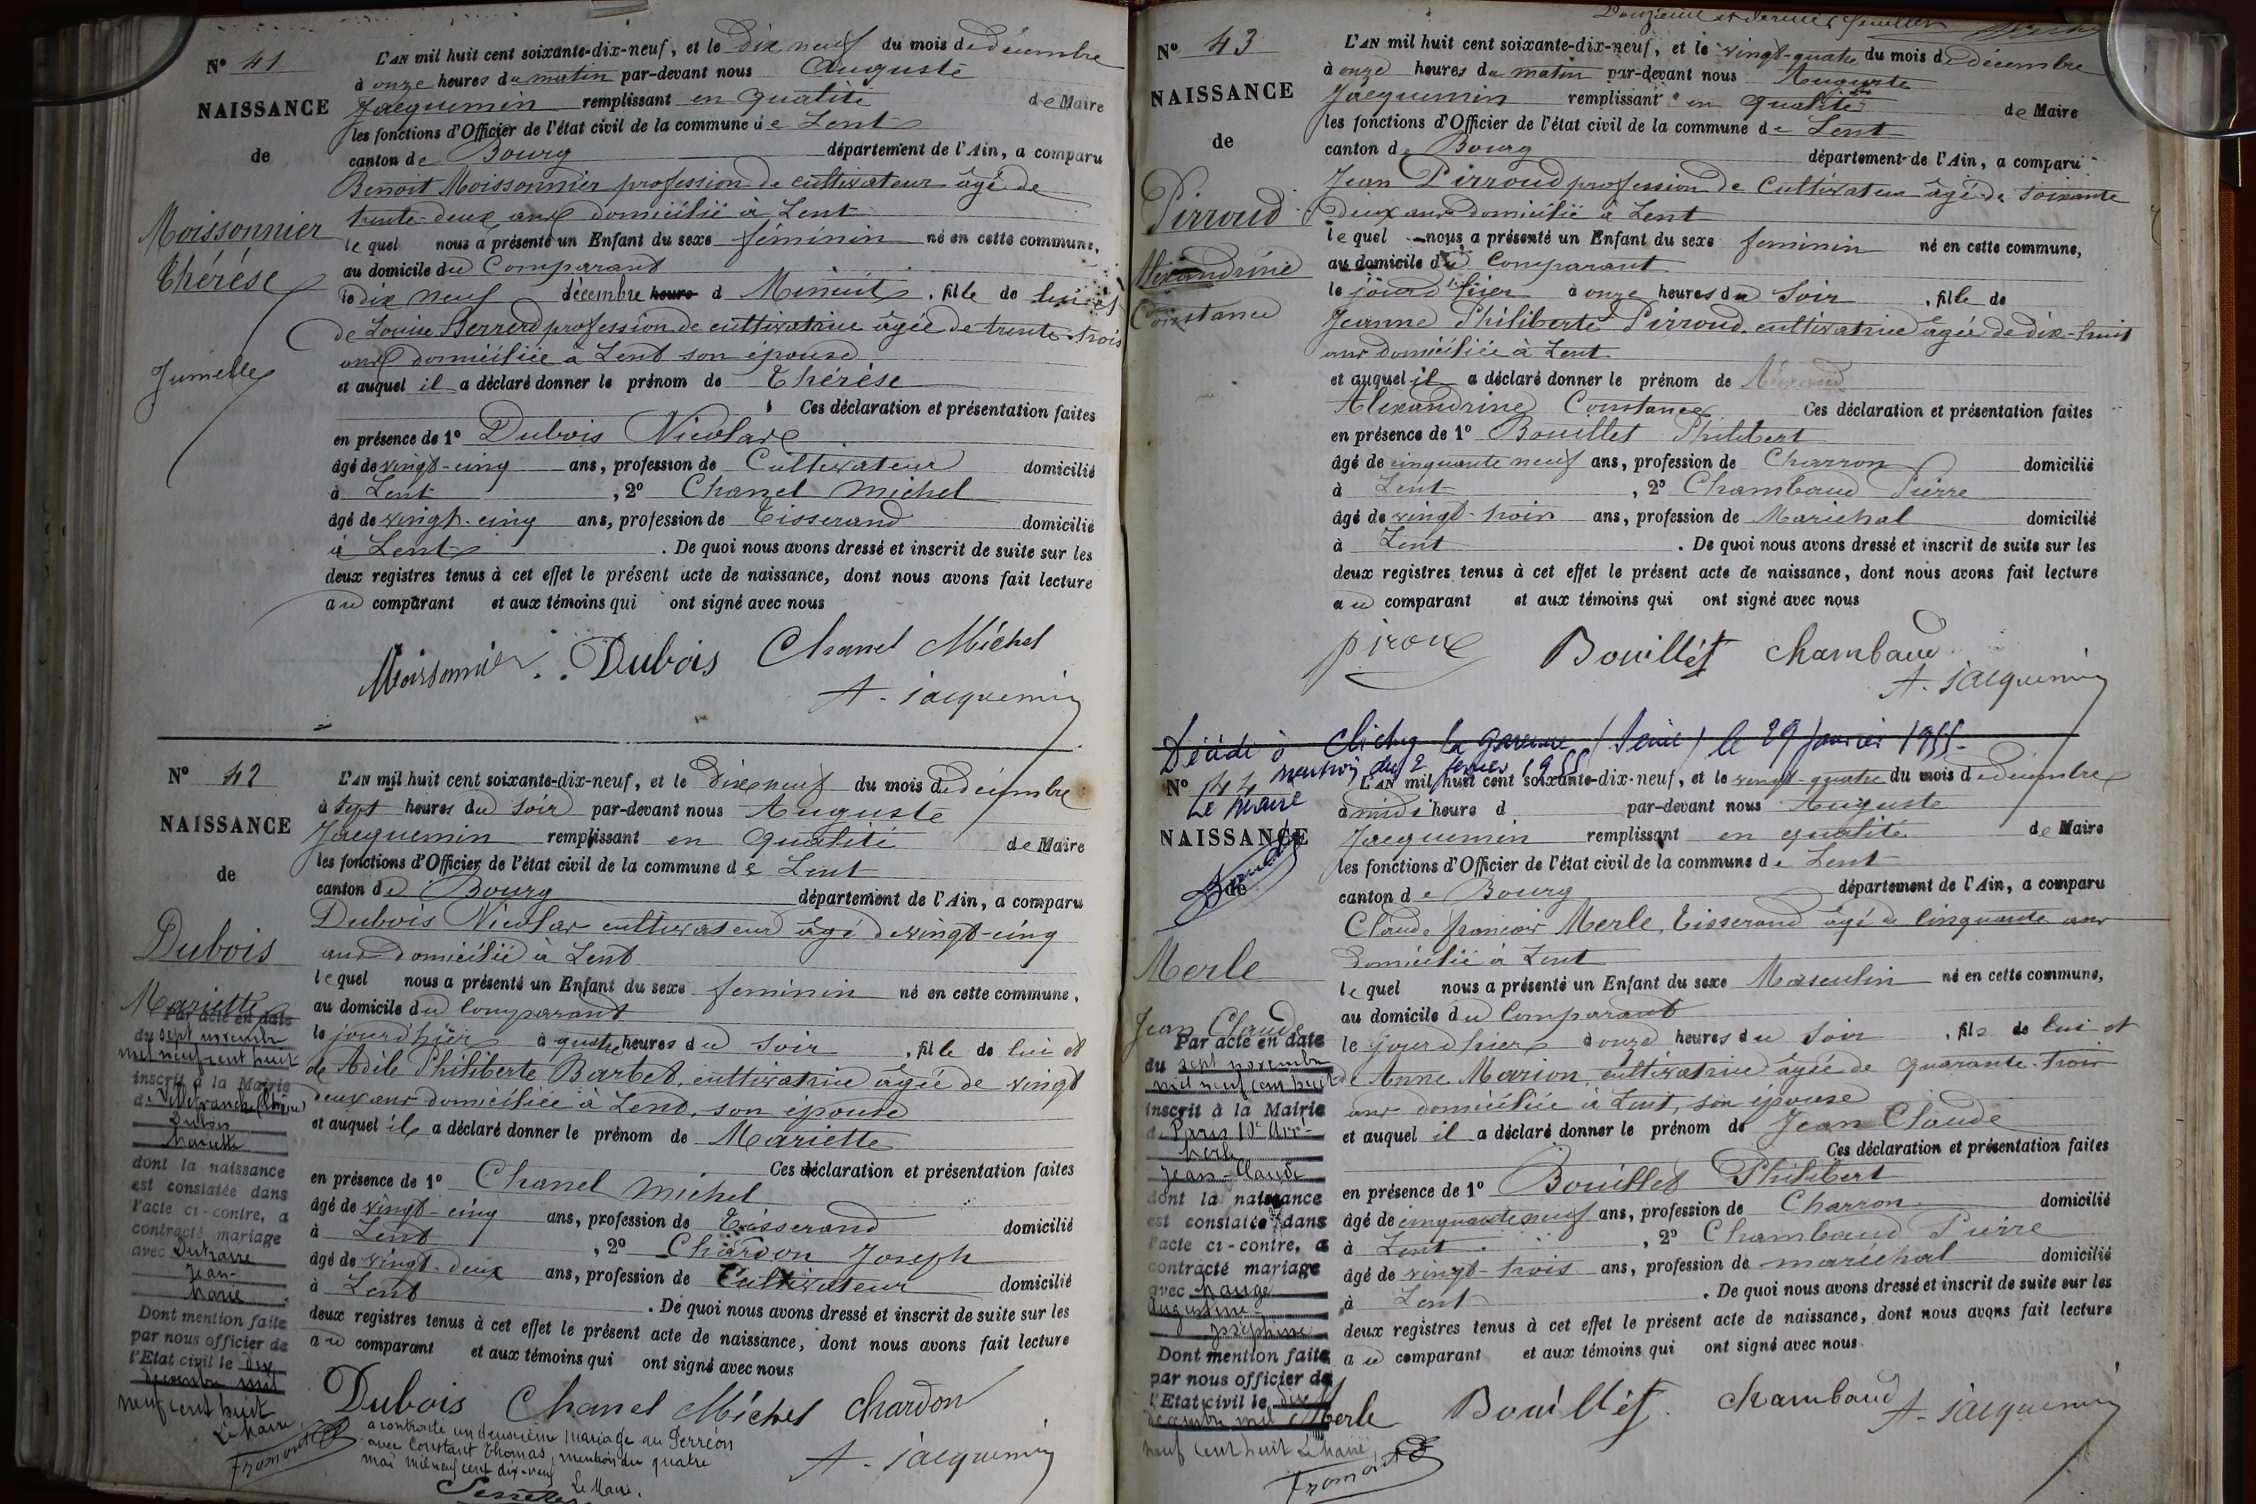 N° 41
NAISSANCE
de
Moissonnier
Thérése
Jumelle
L'AN mil huit cent soixante-dix-neuf, et le Dix neuf du mois de décembre
à onze heures du matin par-devant nous Auguste
Jacquemin remplissant en qualité de Maire
les fonctions d'Officier de l'état civil de la commune de Lent
canton de Bourg département de l'Ain, a comparu
Benoit Moissonnier profession de cultivateur âgé de
trente-deux ans domicilié à Lent
lequel nous a présenté un Enfant du sexe féminin né en cette commune,
au domicile du Comparant
le dix neuf décembre heure d Minuit, fille de lui et
de Louise Berrerd profession de cultivatrice âgée de trente-trois
ans domiciliée à Lent son épouse
et auquel il a déclaré donner le prénom de Thérèse
Ces déclaration et présentation faites
en présence de 1° Dubois Nicolas
âgé de vingt-cinq ans, profession de Cultivateur domicilié
à Lent, 2° Chanel Michel
âgé de vingt-cinq ans, profession de Tisserand domicilié
à Lent. De quoi nous avons dressé et inscrit de suite sur les
deux registres tenus à cet effet le présent acte de naissance, dont nous avons fait lecture
au comparant et aux témoins qui ont signé avec nous
Moissonnier Dubois Chanel Michel
A. jacquemin
N° 42
NAISSANCE
de
Dubois
Mariette
Par acte en date
du sept novembre
mil neuf cent huit
inscrit à la Mairie
de Villefranche (Rhône)
Dubois
Mariette
dont la naissance
est constatée dans
l'acte ci-contre, a
contracté mariage
avec Dutraive
Jean-
Marie
Dont mention faite
par nous officier de
l'Etat civil le dix
décembre mil
neuf cent huit
Le Maire,
Fromont
L'AN mil huit cent soixante-dix-neuf, et le Dix neuf du mois de décembre
à sept heures du soir par-devant nous Auguste
Jacquemin remplissant en qualité de Maire
les fonctions d'Officier de l'état civil de la commune de Lent
canton de Bourg département de l'Ain, a comparu
Dubois Nicolas cultivateur âgé de vingt-cinq
ans domicilié à Lent
lequel nous a présenté un Enfant du sexe feminin né en cette commune,
au domicile du comparant
le jourd'hier à quatre heures du soir, fille de lui et
de Adèle Philiberte Barbet, cultivatrice âgée de vingt
deux ans domiciliée à Lent, son épouse
et auquel il a déclaré donner le prénom de Mariette
Ces déclaration et présentation faites
en présence de 1° Chanel Michel
âgé de vingt-cinq ans, profession de Tisserand domicilié
à Lent, 2° Chardon Joseph
âgé de vingt-deux ans, profession de Cultivateur domicilié
à Lent. De quoi nous avons dressé et inscrit de suite sur les
deux registres tenus à cet effet le présent acte de naissance, dont nous avons fait lecture
au comparant et aux témoins qui ont signé avec nous
Dubois Chanel Michel chardon
A. jacquemin
a contracté un deuxième mariage au Perréon
avec Constant Thomas, mention du quatre
mai mil neuf cent dix-neuf
Le Maire.
Douzième et dernier feuillet
N° 43
NAISSANCE
de
Pirroud
Alexandrine
Constance
L'AN mil huit cent soixante-dix-neuf, et le vingt-quatre du mois de décembre
à onze heures du matin par-devant nous Auguste
Jacquemin remplissant en qualité de Maire
les fonctions d'Officier de l'état civil de la commune de Lent
canton de Bourg département de l'Ain, a comparu
Jean Pirroud profession de Cultivateur âgé de soixante
deux ans domicilié à Lent
lequel nous a présenté un Enfant du sexe feminin né en cette commune,
au domicile du Comparant
le jourd'hier à onze heures du soir, fille de
Jeanne Philiberte Pirroud cultivatrice âgée de dix-huit
ans domiciliée à Lent
et auquel il a déclaré donner le prénom de
Alexandrine Constance Ces déclaration et présentation faites
en présence de 1° Bouillet Philibert
âgé de cinquante neuf ans, profession de Charron domicilié
à Lent, 2° Chambaud Pierre
âgé de vingt-trois ans, profession de Maréchal domicilié
à Lent. De quoi nous avons dressé et inscrit de suite sur les
deux registres tenus à cet effet le présent acte de naissance, dont nous avons fait lecture
au comparant et aux témoins qui ont signé avec nous
piroux Bouillet chambaud
A. jacquemin
Décédé à Clichy la garenne (Seine) le 29 Janvier 1955.
mention du 2 février 1955
Le Maire
N° 44
NAISSANCE
de
Merle
Jean Claude
Par acte en date
du sept novembre
mil neuf cent huit
inscrit à la Mairie
de Paris 10e Arr.
Merle
Jean-Claude
dont la naissance
est constatée dans
l'acte ci-contre, a
contracté mariage
avec Mauge
Augustine
Joséphine
Dont mention faite
par nous officier de
l'Etat civil le dix
décembre mil
neuf cent huit Le Maire,
Fromont
L'AN mil huit cent soixante-dix-neuf, et le vingt-quatre du mois de décembre
à midi heure d par-devant nous Auguste
Jacquemin remplissant en qualité de Maire
les fonctions d'Officier de l'état civil de la commune de Lent
canton de Bourg département de l'Ain, a comparu
Claude françois Merle, Tisserand âgé de cinquante ans
Domicilié à Lent
lequel nous a présenté un Enfant du sexe Masculin né en cette commune,
au domicile du Comparant
le jourd'hier à onze heures du soir, fils de lui et
de Anne Marion, cultivatrice âgée de quarante-trois
ans domiciliée à Lent, son épouse
et auquel il a déclaré donner le prénom de Jean Claude
Ces déclaration et présentation faites
en présence de 1° Bouillet Philibert
âgé de cinquante neuf ans, profession de Charron domicilié
à Lent, 2° Chambaud Pierre
âgé de vingt-trois ans, profession de maréchal domicilié
à Lent. De quoi nous avons dressé et inscrit de suite sur les
deux registres tenus à cet effet le présent acte de naissance, dont nous avons fait lecture
au comparant et aux témoins qui ont signé avec nous
Merle Bouillet chambaud A. jacquemin